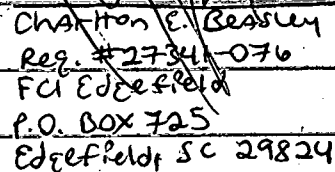 CHARLTON E. BEASLEY
Reg. #27341-076
FCI Edgefield
P.O. BOX 725
Edgefield, SC 29824